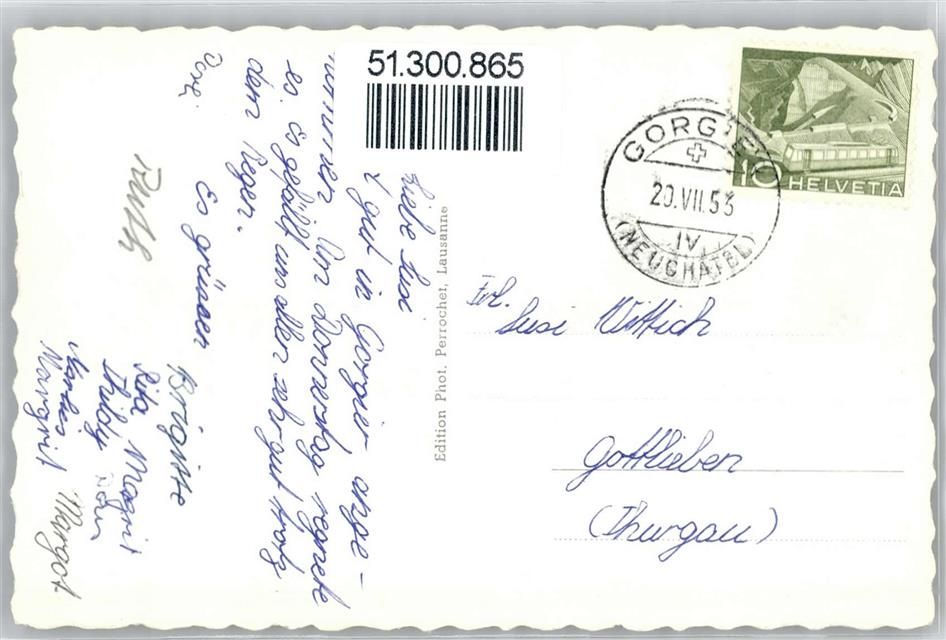 51.300.865
GORGIER
20.VII.53
IV
(NEUCHÂTEL)
10 HELVETIA
Edition Phot. Perrochet, Lausanne
Frl.
Susi Wittich
Gottlieben
(Thurgau)
Liebe Susi
gut in Gorgier ange-
kommen. Am Donnerstag regnete
es. Es gefällt uns allen sehr gut trotz
dem Regen.
Es grüssen
Dorli
Ruth
Brigitte
Rita Margrit
Thildy
Markus
Margrit Margot